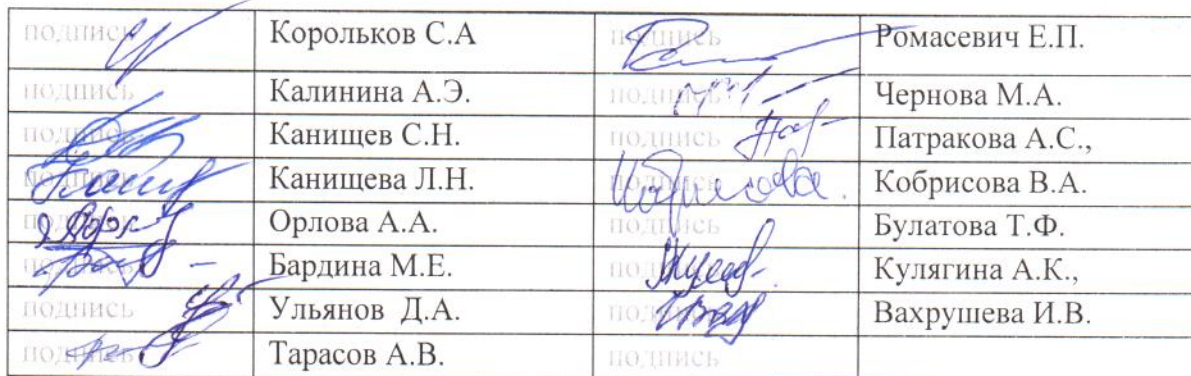 подпись Корольков С.А подпись Ромасевич Е.П.
подпись Калинина А.Э. подпись Чернова М.А.
подпись Канищев С.Н. подпись Патракова А.С.,
подпись Канищева Л.Н. подпись Кобрисова В.А.
подпись Орлова А.А. подпись Булатова Т.Ф.
подпись Бардина М.Е. подпись Кулягина А.К.,
подпись Ульянов Д.А. подпись Вахрушева И.В.
подпись Тарасов А.В. подпись